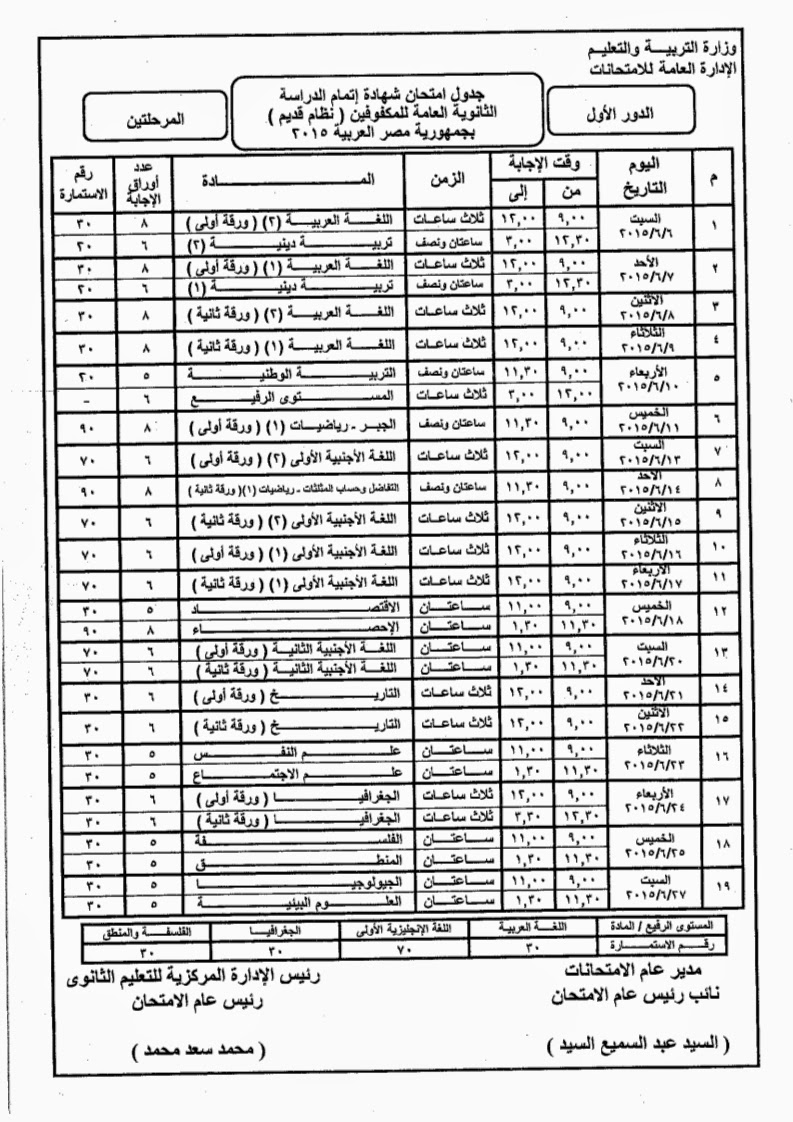 وزارة التربيـــة والتعليـم
الإدارة العامة للامتحانات
الدور الأول
جدول امتحان شهادة إتمام الدراسة
الثانوية العامة للمكفوفين ( نظام قديم )
بجمهورية مصر العربية ٢٠١٥
المرحلتين
م اليوم التاريخ وقت الإجابة من إلى الزمن المـــادة عدد أوراق الإجابة رقم الاستمارة
١ السبت ٢٠١٥/٦/٦ ٩,٠٠ ١٢,٠٠ ثلاث ساعـات اللغـــة العربيـــة (٢) ( ورقة أولى ) ٨ ٣٠
١٢,٣٠ ٣,٠٠ ساعتان ونصف تربيـــة دينيـــة (٢) ٦ ٢٠
٢ الأحد ٢٠١٥/٦/٧ ٩,٠٠ ١٢,٠٠ ثلاث ساعـات اللغـــة العربيـــة (١) ( ورقة أولى ) ٨ ٣٠
١٢,٣٠ ٣,٠٠ ساعتان ونصف تربيـــة دينيـــة (١) ٦ ٢٠
٣ الاثنين ٢٠١٥/٦/٨ ٩,٠٠ ١٢,٠٠ ثلاث ساعـات اللغـــة العربيـــة (٢) ( ورقة ثانية ) ٨ ٣٠
٤ الثلاثاء ٢٠١٥/٦/٩ ٩,٠٠ ١٢,٠٠ ثلاث ساعـات اللغـــة العربيـــة (١) ( ورقة ثانية ) ٨ ٣٠
٥ الأربعاء ٢٠١٥/٦/١٠ ٩,٠٠ ١١,٣٠ ساعتان ونصف التربيـــة الوطنيـــة ٥ ٢٠
١٢,٠٠ ٣,٠٠ ثلاث ساعـات المســـتوى الرفيـــع ٦ -
٦ الخميس ٢٠١٥/٦/١١ ٩,٠٠ ١١,٣٠ ساعتان ونصف الجبـر - رياضيـات (١) ( ورقة أولى ) ٨ ٩٠
٧ السبت ٢٠١٥/٦/١٣ ٩,٠٠ ١٢,٠٠ ثلاث ساعـات اللغة الأجنبية الأولى (٢) ( ورقة أولى ) ٦ ٧٠
٨ الأحد ٢٠١٥/٦/١٤ ٩,٠٠ ١١,٣٠ ساعتان ونصف التفاضل وحساب المثلثات - رياضيات (١)( ورقة ثانية ) ٨ ٩٠
٩ الاثنين ٢٠١٥/٦/١٥ ٩,٠٠ ١٢,٠٠ ثلاث ساعـات اللغة الأجنبية الأولى (٢) ( ورقة ثانية ) ٦ ٧٠
١٠ الثلاثاء ٢٠١٥/٦/١٦ ٩,٠٠ ١٢,٠٠ ثلاث ساعـات اللغة الأجنبية الأولى (١) ( ورقة أولى ) ٦ ٧٠
١١ الأربعاء ٢٠١٥/٦/١٧ ٩,٠٠ ١٢,٠٠ ثلاث ساعـات اللغة الأجنبية الأولى (١) ( ورقة ثانية ) ٦ ٧٠
١٢ الخميس ٢٠١٥/٦/١٨ ٩,٠٠ ١١,٠٠ ســـاعتـــان الاقتصـــاد ٥ ٣٠
١١,٣٠ ١,٣٠ ســـاعتـــان الإحصـــاء ٨ ٩٠
١٣ السبت ٢٠١٥/٦/٢٠ ٩,٠٠ ١١,٠٠ ســـاعتـــان اللغة الأجنبية الثانيـة ( ورقة أولى ) ٦ ٧٠
١١,٣٠ ١,٣٠ ســـاعتـــان اللغة الأجنبية الثانيـة ( ورقة ثانية ) ٦ ٧٠
١٤ الأحد ٢٠١٥/٦/٢١ ٩,٠٠ ١٢,٠٠ ثلاث ساعـات التاريـــخ ( ورقة أولى ) ٦ ٣٠
١٥ الاثنين ٢٠١٥/٦/٢٢ ٩,٠٠ ١٢,٠٠ ثلاث ساعـات التاريـــخ ( ورقة ثانية ) ٦ ٣٠
١٦ الثلاثاء ٢٠١٥/٦/٢٣ ٩,٠٠ ١١,٠٠ ســـاعتـــان علـــم النفـــس ٥ ٣٠
١١,٣٠ ١,٣٠ ســـاعتـــان علـــم الاجتمـــاع ٥ ٣٠
١٧ الأربعاء ٢٠١٥/٦/٢٤ ٩,٠٠ ١٢,٠٠ ثلاث ساعـات الجغرافيـــا ( ورقة أولى ) ٦ ٣٠
١٢,٣٠ ٣,٣٠ ثلاث ساعـات الجغرافيـــا ( ورقة ثانية ) ٦ ٣٠
١٨ الخميس ٢٠١٥/٦/٢٥ ٩,٠٠ ١١,٠٠ ســـاعتـــان الفلسـفـــة ٥ ٣٠
١١,٣٠ ١,٣٠ ســـاعتـــان المنطـــق ٥ ٣٠
١٩ السبت ٢٠١٥/٦/٢٧ ٩,٠٠ ١١,٠٠ ســـاعتـــان الجيولوجيـــا ٥ ٣٠
١١,٣٠ ١,٣٠ ســـاعتـــان العلـــوم البيئيـــة ٥ ٣٠
المستوى الرفيع / المادة اللغـــة العربيـــة اللغة الإنجليزية الأولى الجغرافيـــا الفلسفـــة والمنطق
رقـــم الاستمـــارة ٣٠ ٧٠ ٣٠ ٣٠
مدير عام الامتحانات
نائب رئيس عام الامتحان
( السيد عبد السميع السيد )
رئيس الإدارة المركزية للتعليم الثانوى
رئيس عام الامتحان
( محمد سعد محمد )